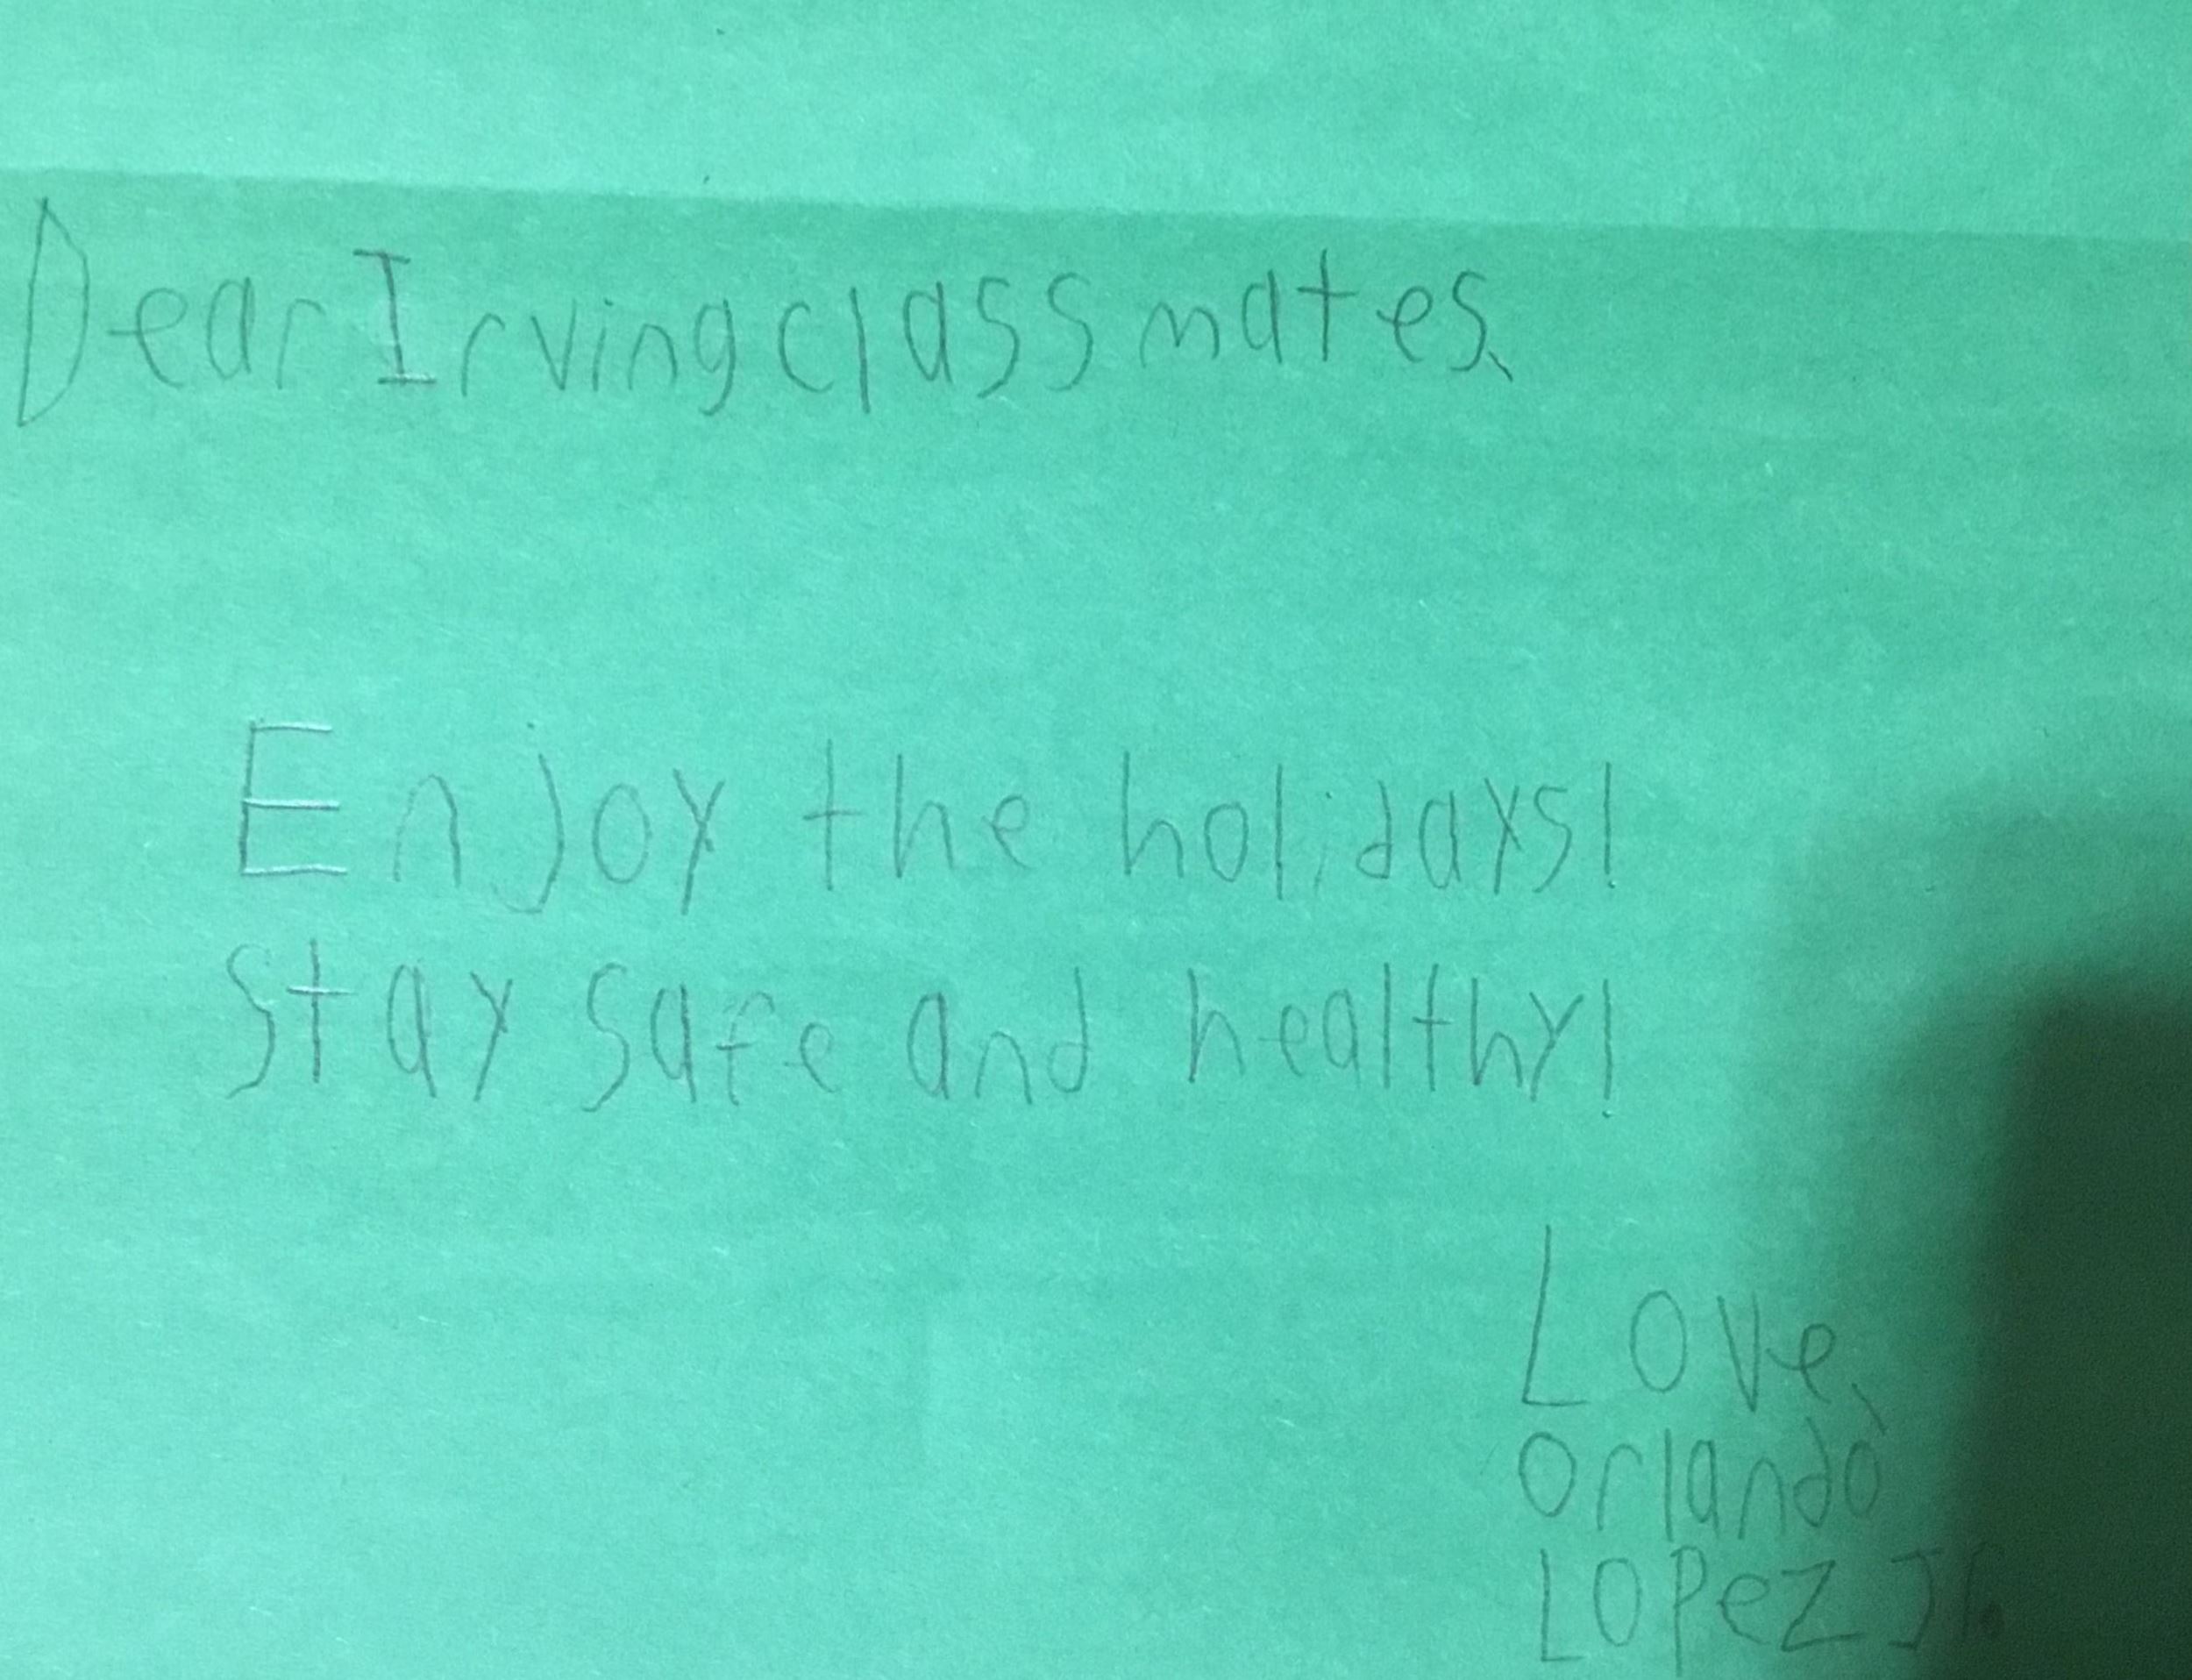 Dear Irving classmates,
Enjoy the holidays!
Stay safe and healthy!
Love,
Orlando
Lopez Jr.